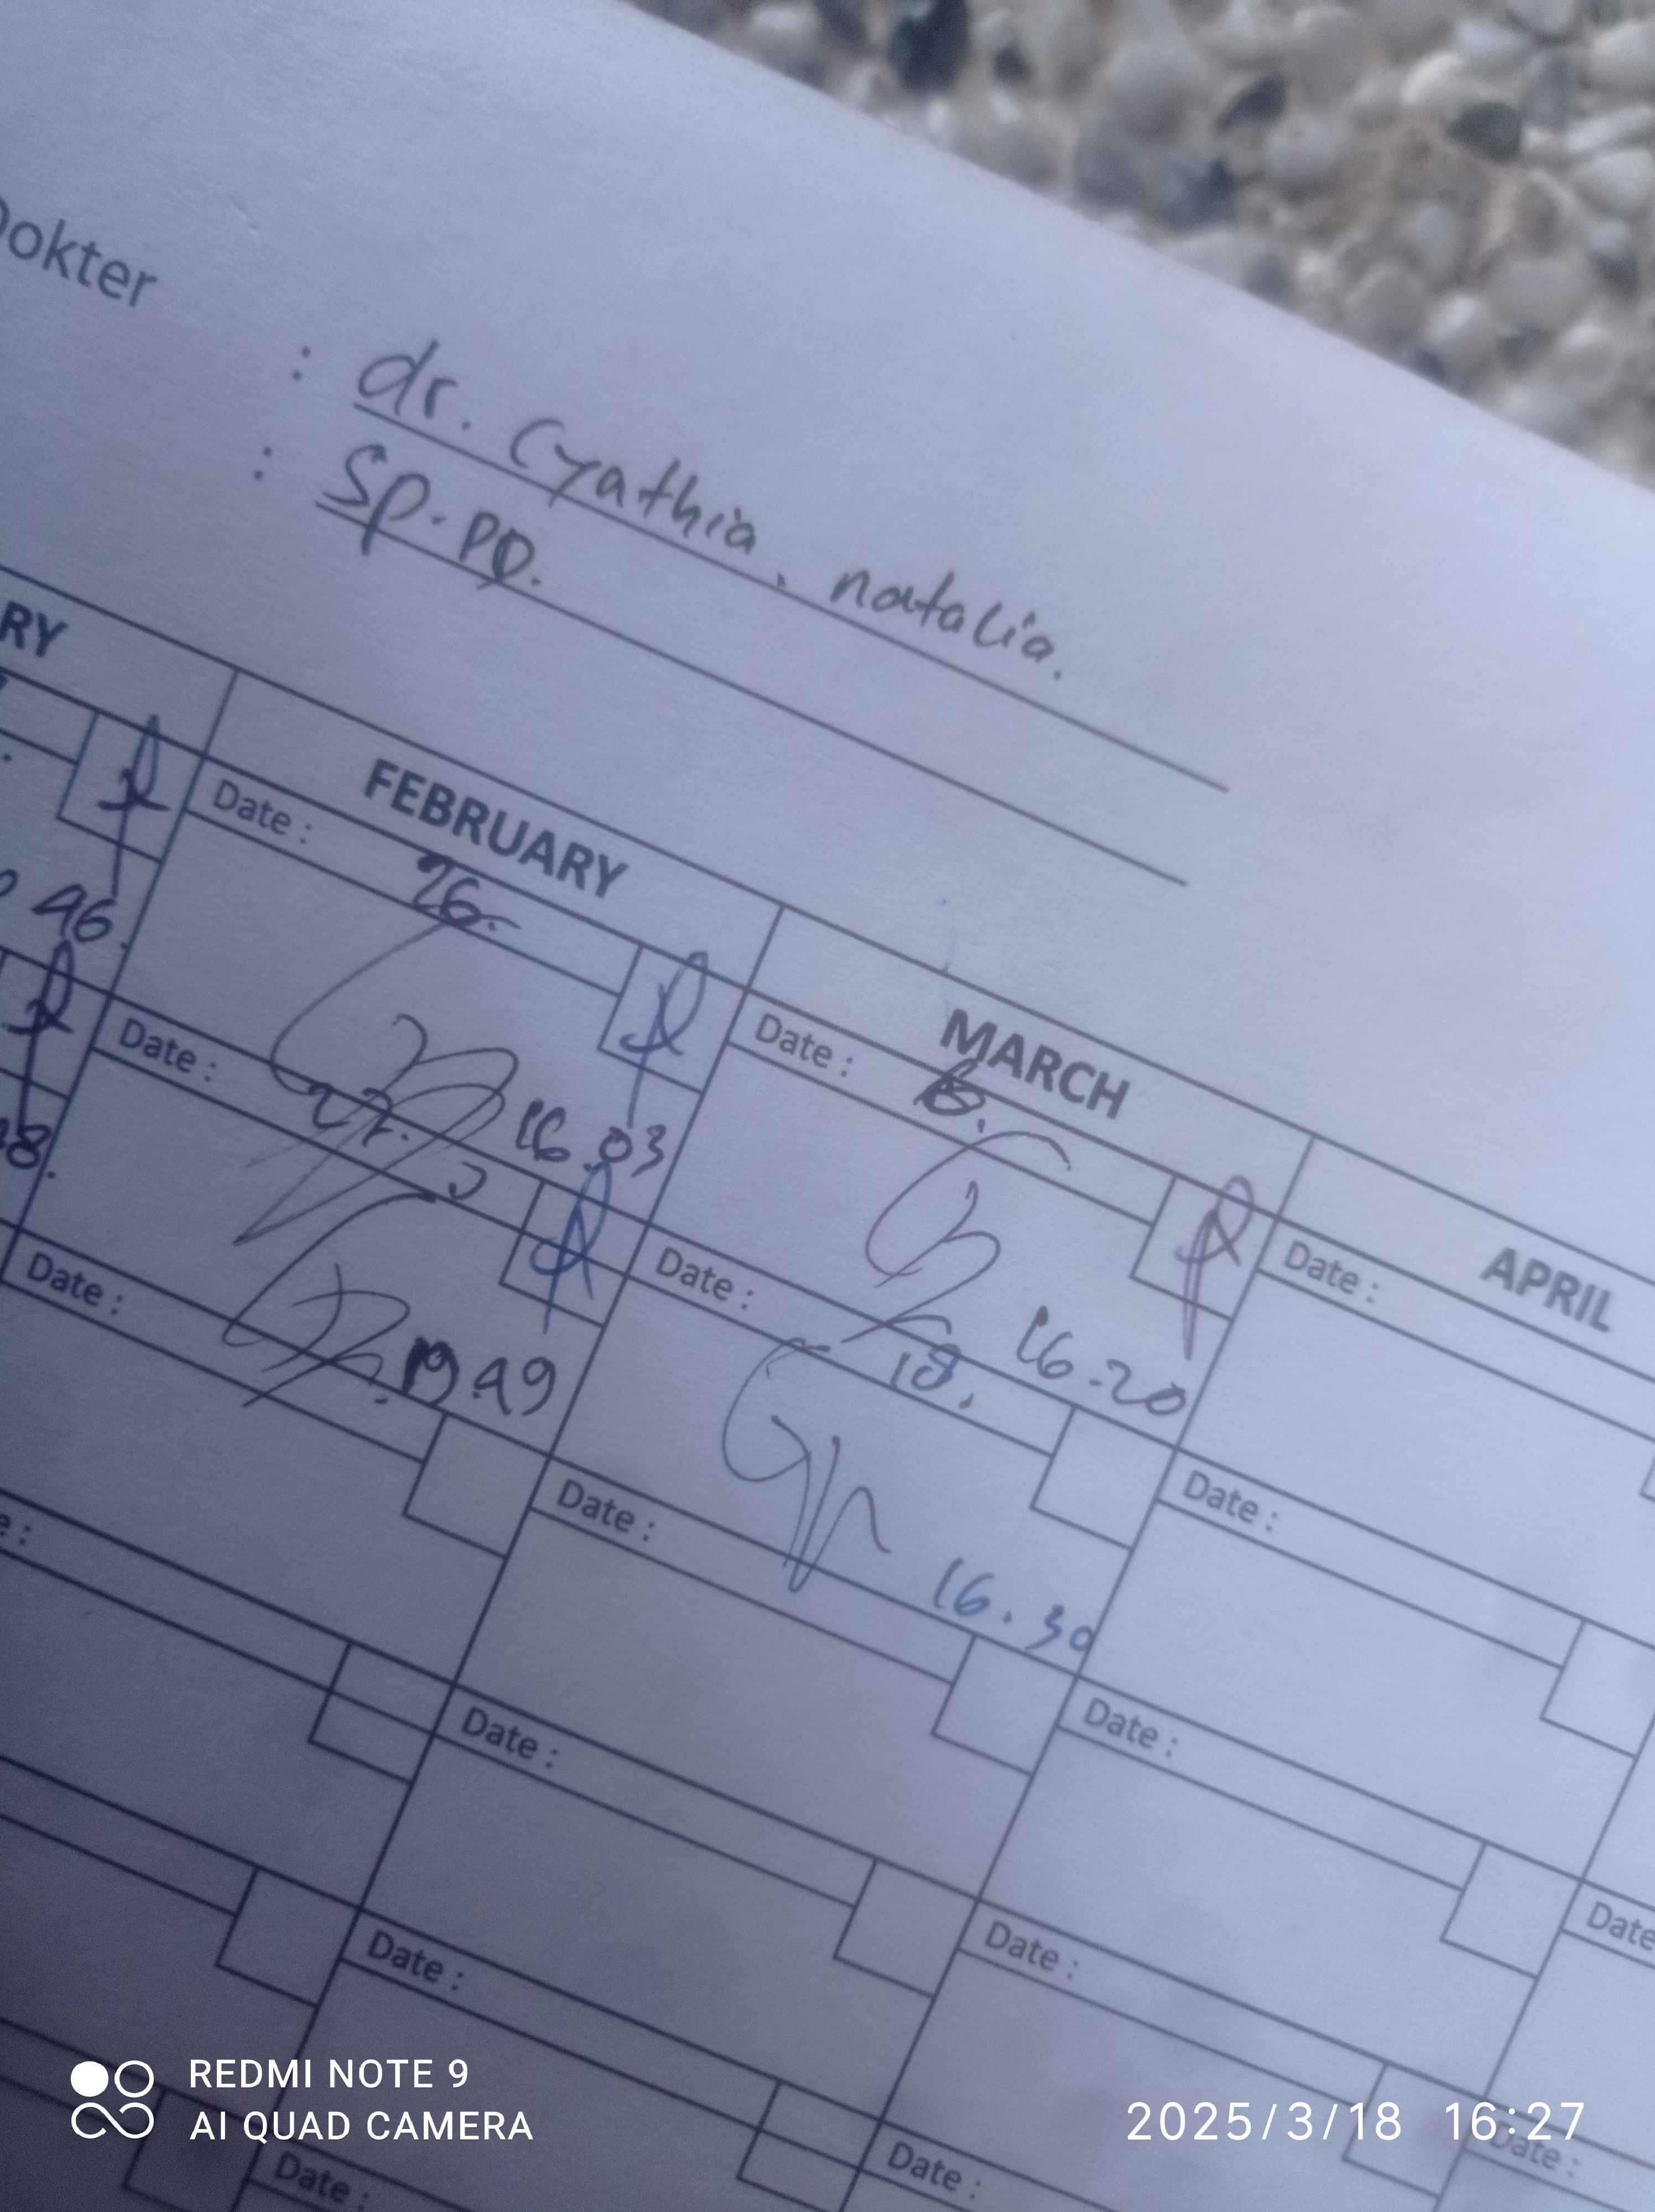 Dokter
: dr. Cyathia. natalia.
: Sp.PD.
RY
FEBRUARY
MARCH
APRIL
Date : 26.
16.03
Date : 6.
16.20
Date :
46.
Date : 27.
19.49
Date : 18.
16.30
Date :
8.
Date :
Date :
Date :
e :
Date :
Date :
Date
Date :
Date :
Date :
Date :
Date :
REDMI NOTE 9
AI QUAD CAMERA
2025/3/18 16:27